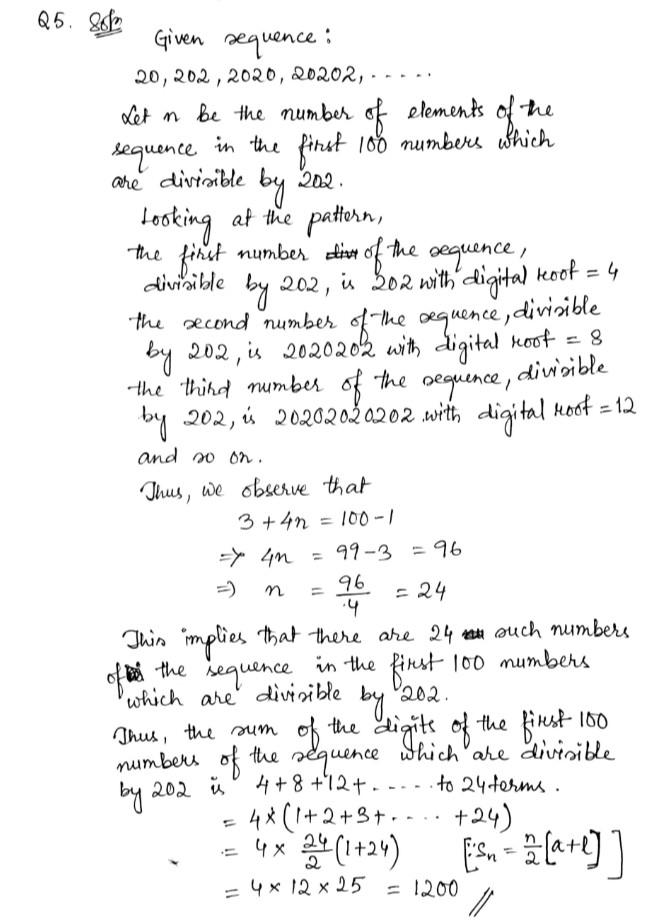 Q5. Solⁿ
Given sequence :
20, 202, 2020, 20202, - - - - -
Let n be the number of elements of the
sequence in the first 100 numbers which
are divisible by 202.
Looking at the pattern,
the first number of the sequence,
divisible by 202, is 202 with digital root = 4
the second number of the sequence, divisible
by 202, is 2020202 with digital root = 8
the third number of the sequence, divisible
by 202, is 20202020202 with digital root = 12
and so on.
Thus, we observe that
3 + 4n = 100 - 1
=> 4n = 99 - 3 = 96
=> n = 96/4 = 24
This implies that there are 24 such numbers
of the sequence in the first 100 numbers
which are divisible by 202.
Thus, the sum of the digits of the first 100
numbers of the sequence which are divisible
by 202 is 4 + 8 + 12 + - - - - - to 24 terms.
= 4 × (1 + 2 + 3 + - - - - + 24)
= 4 × 24/2 (1 + 24) [∵ Sn = n/2 [a + l]]
= 4 × 12 × 25 = 1200 //